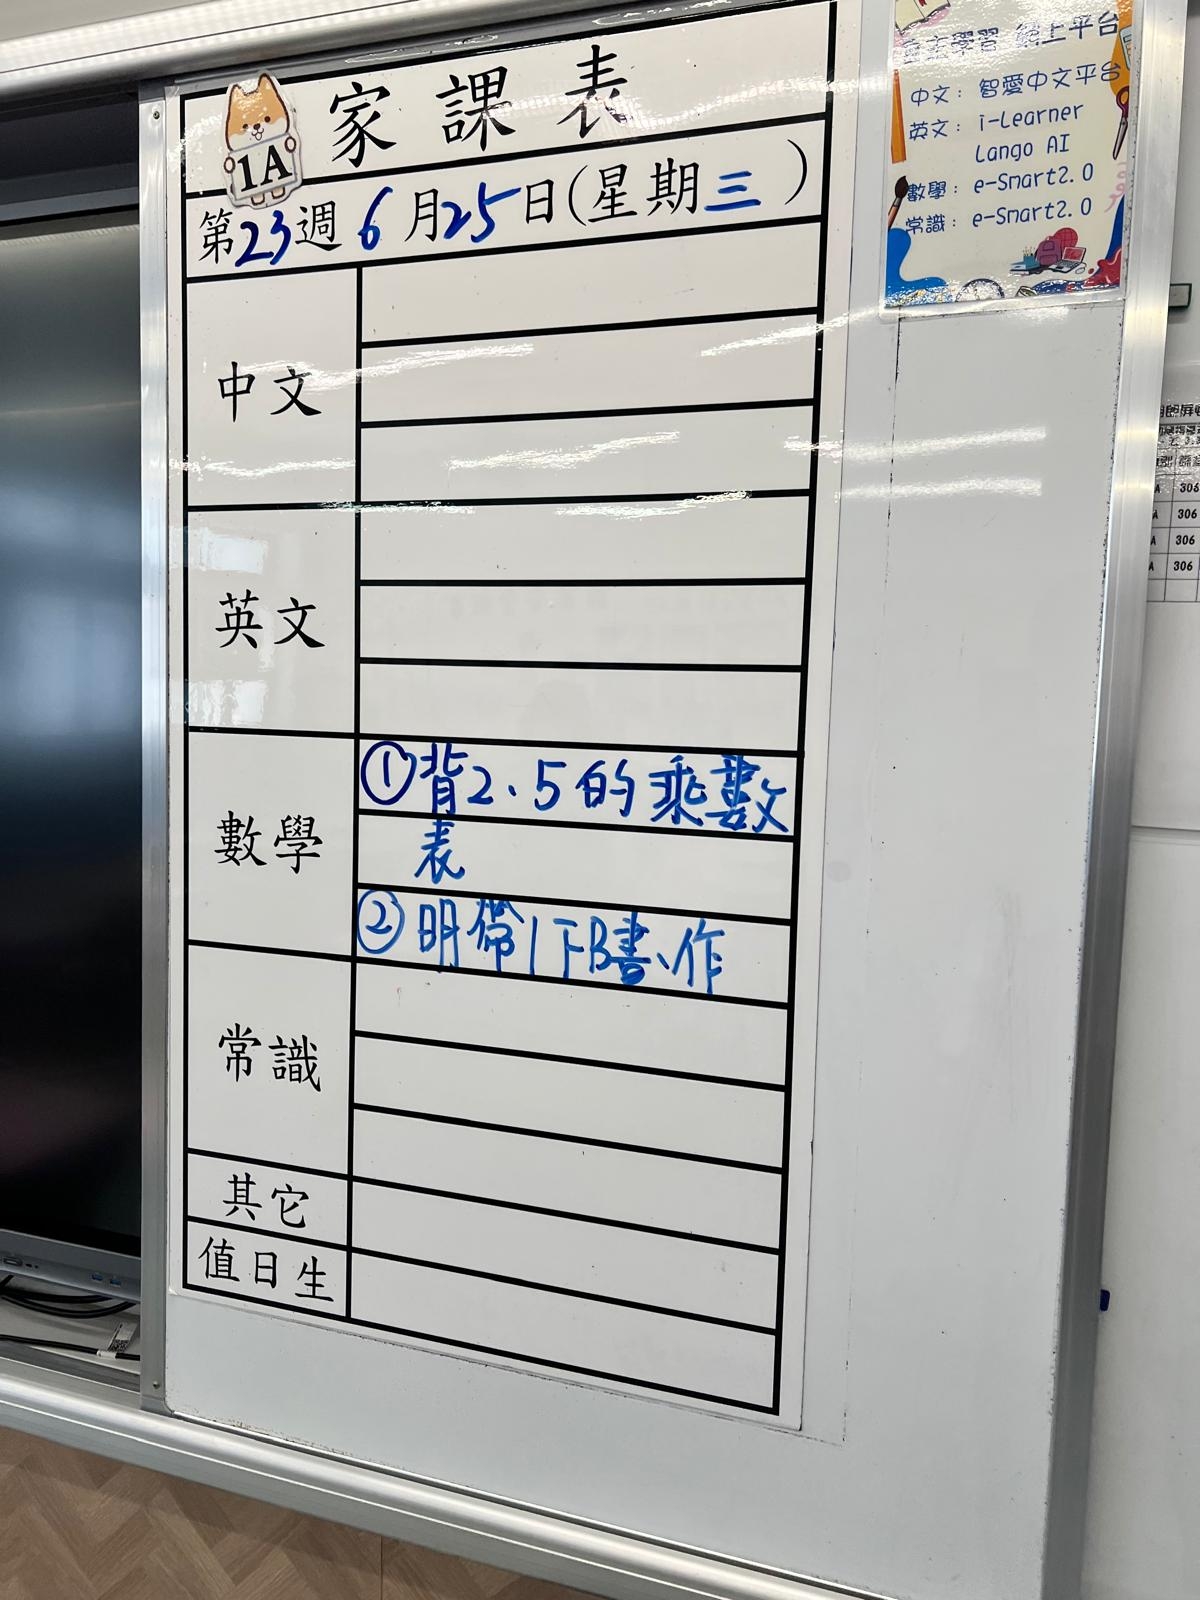 家課表
1A
第23週 6月25日(星期三)
中文
英文
數學
①背2、5的乘數
表
②明帶1下B書、作
常識
其它
值日生
自主學習 網上平台
中文：智愛中文平台
英文：i-Learner
Lango AI
數學：e-Smart2.0
常識：e-Smart2.0
306
306
306
306